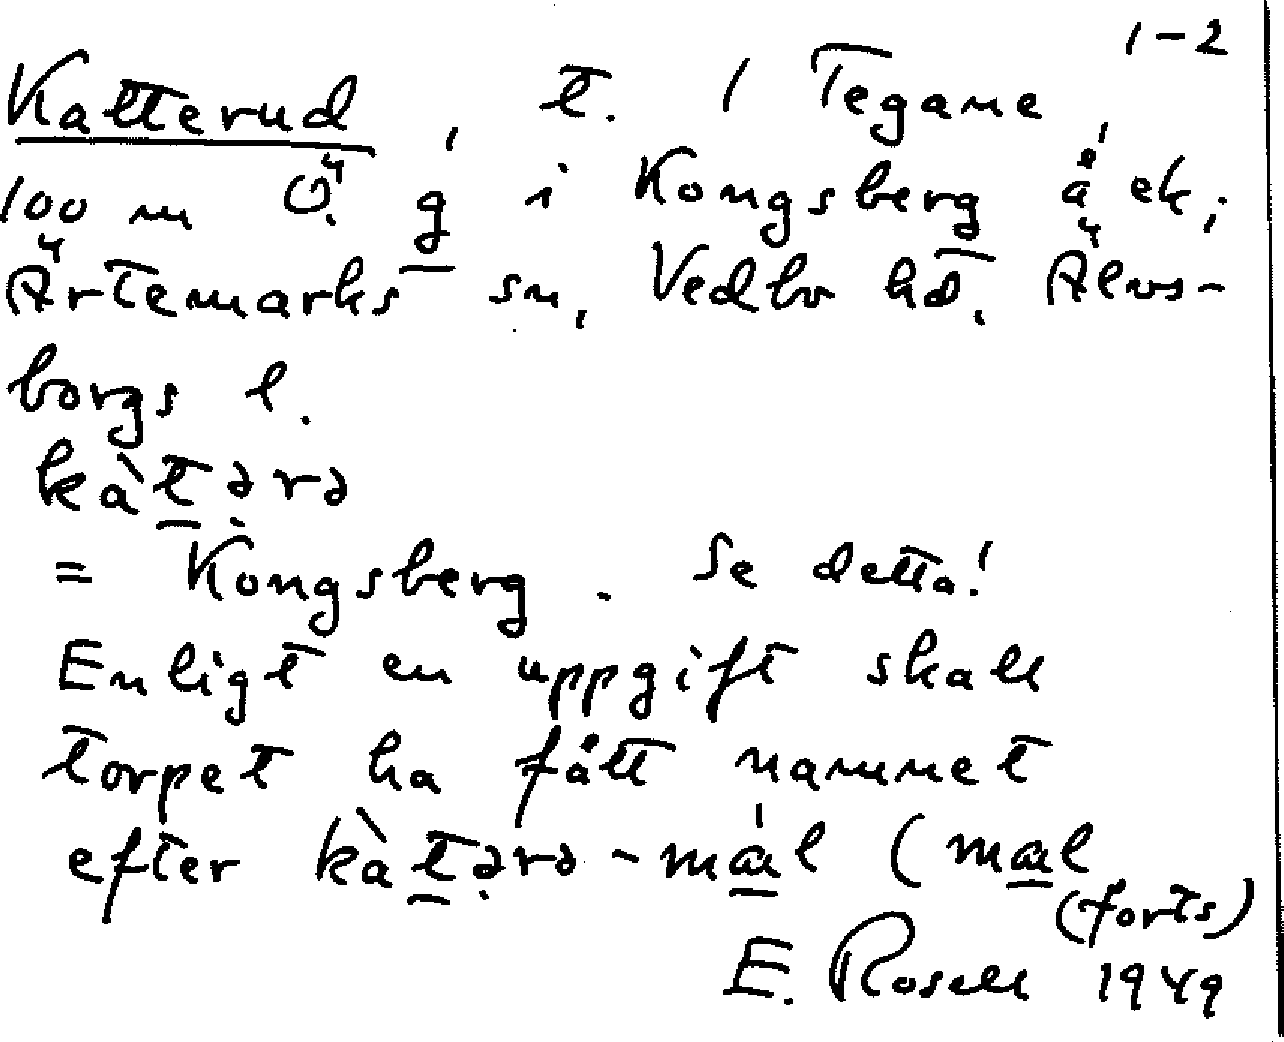 1-2
Katterud, t. / Tegane,
100 m Ö. g i Kongsberg å ek,
Ärtemarks sn, Vedbo hd, Älvs-
borgs l.
kàtərə
= Kongsberg. Se detta!
Enligt en uppgift skall
torpet ha fått namnet
efter kàtərə-mál (mal
(forts)
E. Rosell 1949